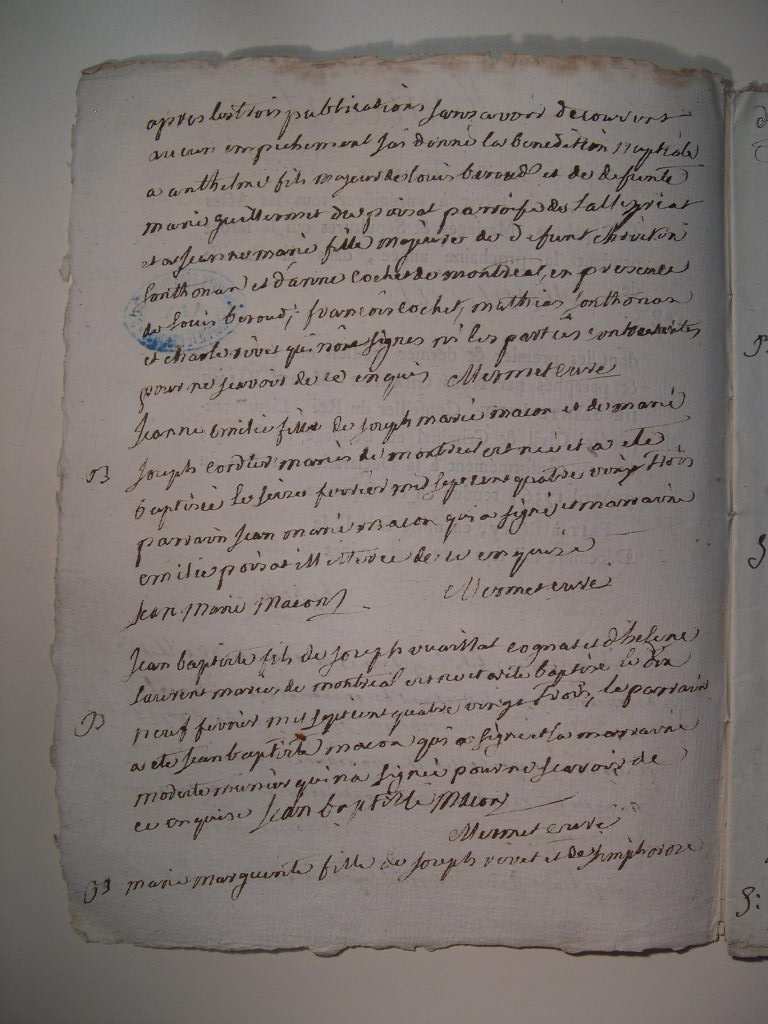 apres les trois publications sans avoir decouvert
aucun empechement j'ai donné la benediction nuptiale
a anthelme fils majeur de louis beroud et de defunte
marie guillermet du poisat paroisse de lalleyriat
et a jeanne marie fille majeure de defunt christin
sonthonax et d'anne cochet de montreal, en presence
de louis beroud, françois cochet, mathieu sonthonax
et charle rivet qui n'ont signes ni les parties contractantes
pour ne scavoir de ce enquis Mermet curé
Jeanne emilie fille de joseph marie macon et de marie
B joseph cordier mariés de montreal est née et a ete
baptisée le seize fevrier mil sept cent quatre vingt trois
parrain jean marie macon qui a signé et marraine
emilie poisat illiterée de ce enquise
Jean Marie Macon Mermet curé
Jean baptiste fils de joseph vuaillat cognat et d'helene
laurent mariés de montreal est ne et a ete baptisé le dix
B neuf fevrier mil sept cent quatre vingt trois, le parrain
a ete jean baptiste macon qui a signé et la marraine
modeste munier qui n'a signée pour ne scavoir de
ce enquise Jean baptiste Macon
Mermet curé
B marie marguerite fille de joseph rivet et de simphorose